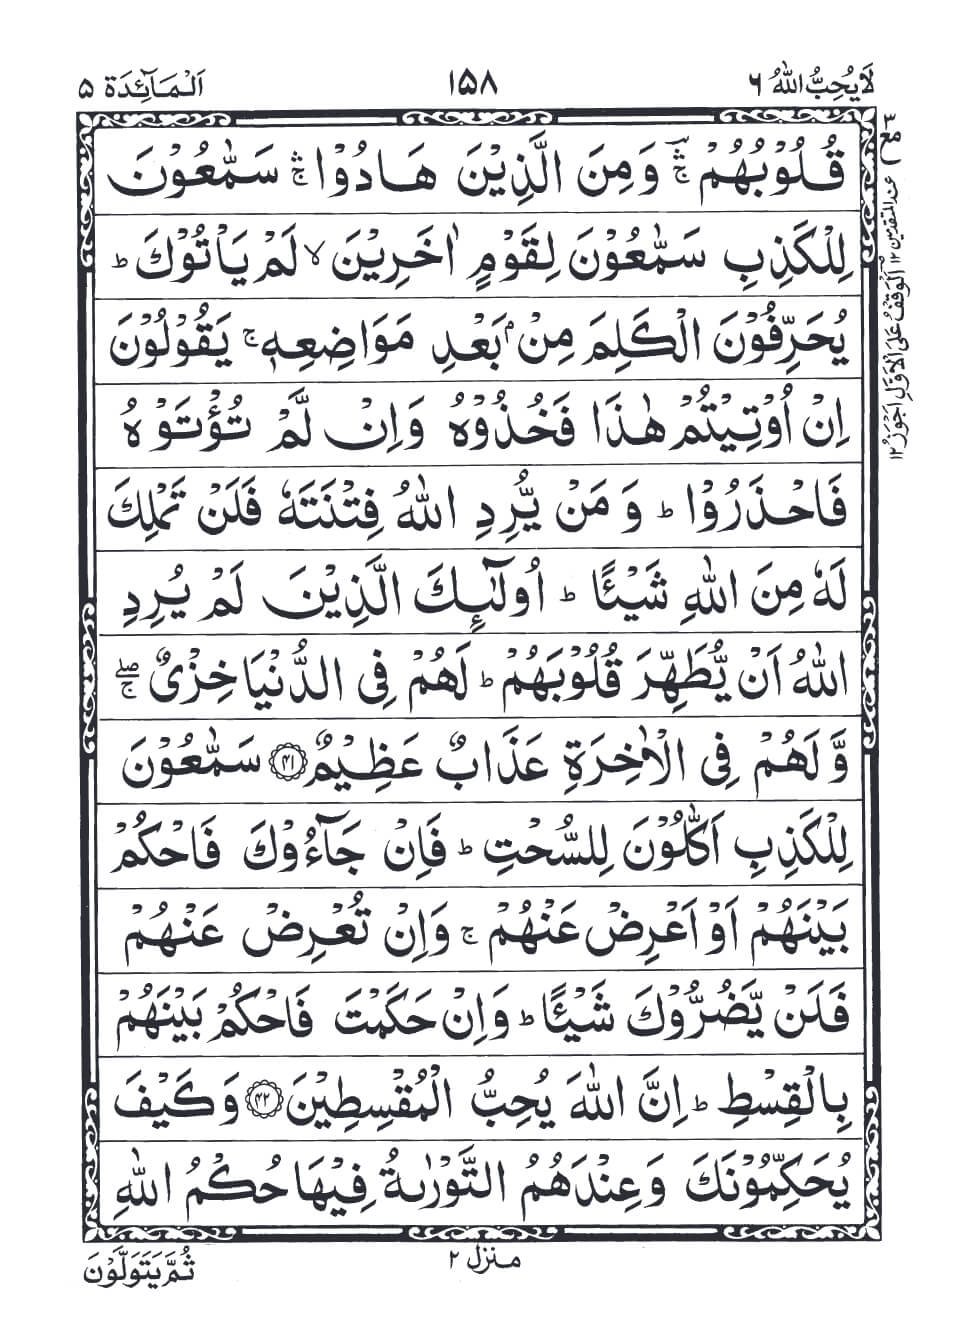 لَا یُحِبُّ اللّٰهُ ٦
١٥٨
اَلْمَآئِدَة ٥
قُلُوْبُهُمْ ۛۚ وَمِنَ الَّذِیْنَ هَادُوْا ۛۚ سَمّٰعُوْنَ
لِلْكَذِبِ سَمّٰعُوْنَ لِقَوْمٍ اٰخَرِیْنَ ۙ لَمْ یَاْتُوْكَ ؕ
یُحَرِّفُوْنَ الْكَلِمَ مِنْۢ بَعْدِ مَوَاضِعِهٖ ۚ یَقُوْلُوْنَ
اِنْ اُوْتِیْتُمْ هٰذَا فَخُذُوْهُ وَاِنْ لَّمْ تُؤْتَوْهُ
فَاحْذَرُوْا ؕ وَمَنْ یُّرِدِ اللّٰهُ فِتْنَتَهٗ فَلَنْ تَمْلِكَ
لَهٗ مِنَ اللّٰهِ شَیْـًٔا ؕ اُولٰٓئِكَ الَّذِیْنَ لَمْ یُرِدِ
اللّٰهُ اَنْ یُّطَهِّرَ قُلُوْبَهُمْ ؕ لَهُمْ فِی الدُّنْیَا خِزْیٌ ۖۚ
وَّلَهُمْ فِی الْاٰخِرَةِ عَذَابٌ عَظِیْمٌ ﴿٤١﴾ سَمّٰعُوْنَ
لِلْكَذِبِ اَكّٰلُوْنَ لِلسُّحْتِ ؕ فَاِنْ جَآءُوْكَ فَاحْكُمْ
بَیْنَهُمْ اَوْ اَعْرِضْ عَنْهُمْ ۚ وَاِنْ تُعْرِضْ عَنْهُمْ
فَلَنْ یَّضُرُّوْكَ شَیْـًٔا ؕ وَاِنْ حَكَمْتَ فَاحْكُمْ بَیْنَهُمْ
بِالْقِسْطِ ؕ اِنَّ اللّٰهَ یُحِبُّ الْمُقْسِطِیْنَ ﴿٤٢﴾ وَكَیْفَ
یُحَكِّمُوْنَكَ وَعِنْدَهُمُ التَّوْرٰىةُ فِیْهَا حُكْمُ اللّٰهِ
مع ٣
عند المتقدمین ١٢
اَلْوَقْفُ عَلَی الْاَوَّلِ اَجْوَزُ ١٢
منزل ٢
ثُمَّ یَتَوَلَّوْنَ